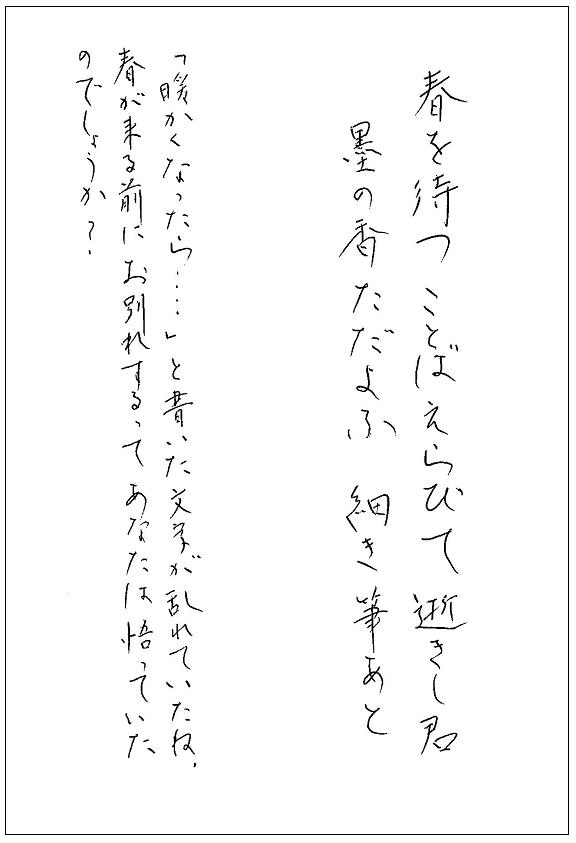 春を待つ ことばえらびて 逝きし君
墨の香ただよふ 細き筆あと
「暖かくなったら....」と書いた文字が乱れていたね.
春が来る前にお別れするって あなたは悟っていた
のでしょうか?